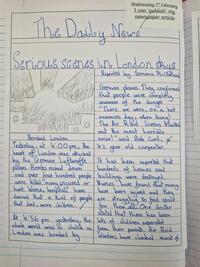 Wednesday 1st February
I can 'publish' my
newspaper article
The Daily News
Serious scenes in London skies
Reported by Jemima
Bombed London
Yesterday, at 4.00pm, the
heart of London was attacked
by the German Luftwaffe
planes. Bombs rained down
and over four hundred people
were killed, many injured or
hurt. Homes, hospitals
damaged that a third of people
that were children.
At 4:56 pm yesterday, the
whole world was in shock as
London was bombed by
German planes. They confirmed
that people were completely
unaware of the danger.
"There we were, on a hot
summers day, when bang!
The Air Raid Sirens blasted
out the most horrible
noise!" said Bob Curl, a
42 year old carpenter.
It has been reported that
hundreds of homes and
buildings were destroyed.
Nurses have found that many
have been injured and they
are struggling to find space
for them all. One doctor
stated that there has been
lots of children separated
from their parents. Air Raid
Wardens have checked most of